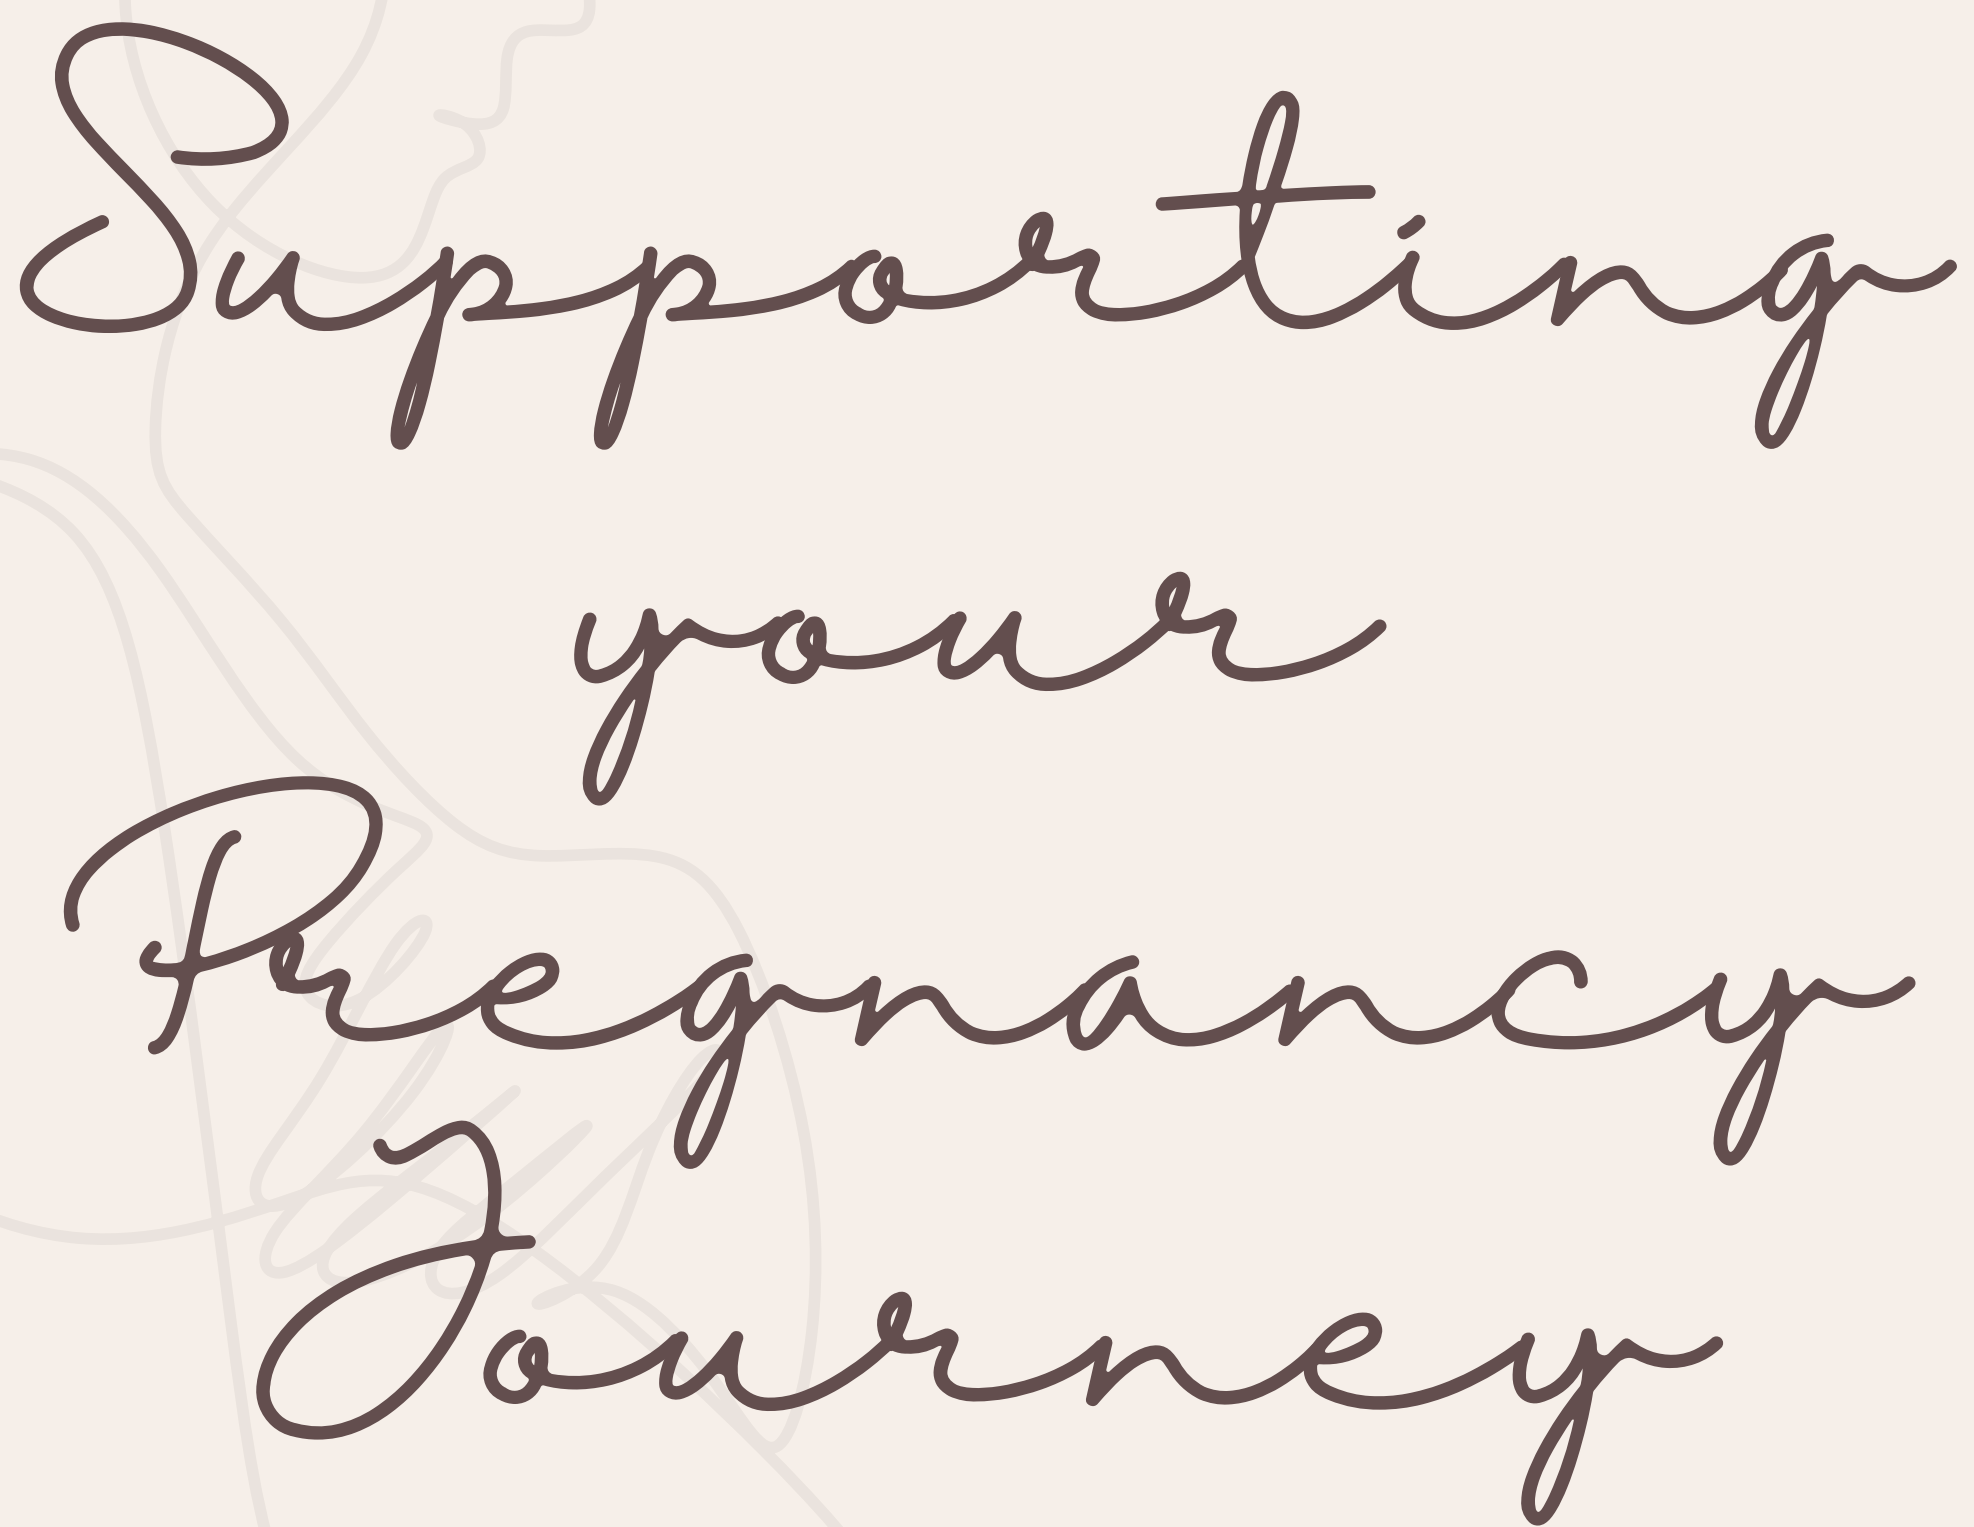 Supporting
your
Pregnancy
Journey